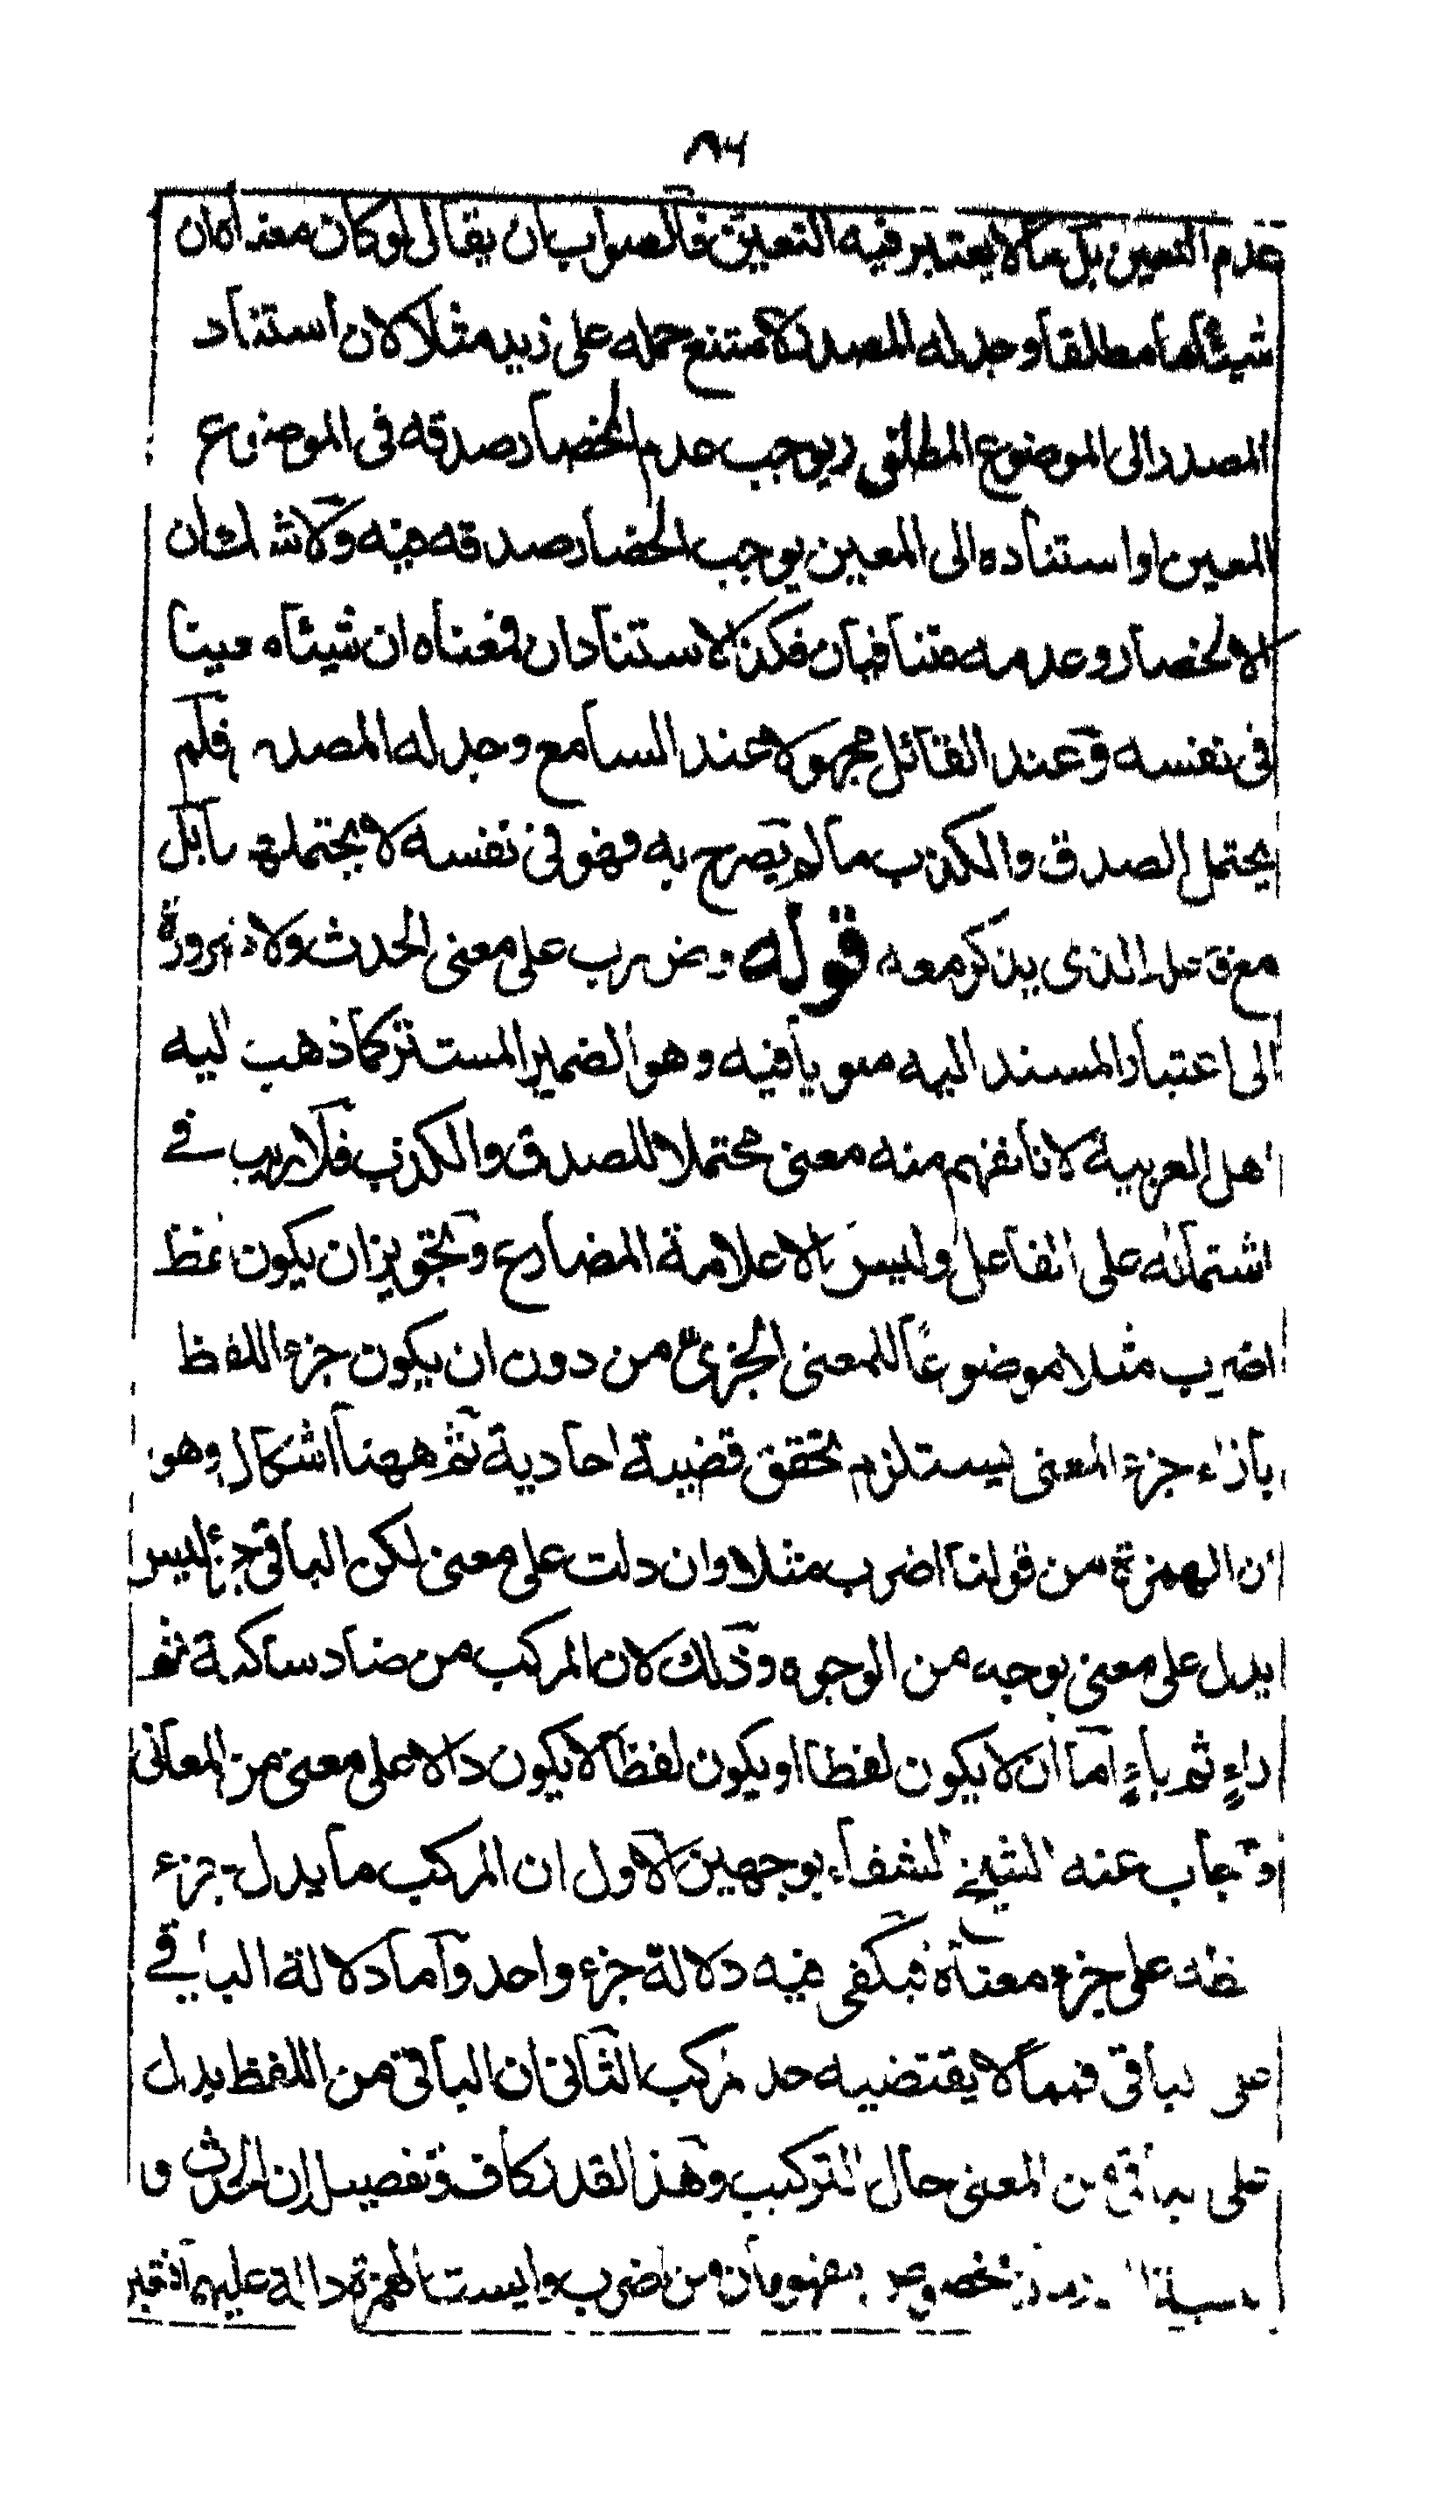 ٨٦
عدم التعين بل ما لا يعتبر فيه التعين فالصواب ان يقال لو كان معناه ان
شيئا ما مطلقا وجد له المصدر لامتنع حمله على زيد مثلا لان استناد
المصدر الى الموضوع المطلق يوجب عدم انحصار صدقه فى الموضوع
المعين واستناده الى المعين يوجب انحصار صدقه فيه ولا شك ان
الانحصار وعدمه متنافيان فكذا الاستنادان فمعناه ان شيئا معينا
فى نفسه وعند القائل مجهولا عند السامع وجد له المصدر فلم
يحتمل الصدق والكذب ما لم يصرح به فهو فى نفسه لا يحتملهما بل
مع فاعله الذى يذكر معه قوله وضرب على معنى الحدث ولا ضرورة
الى اعتبار المسند اليه منويا فيه وهو الضمير المستتر كما ذهب اليه
اهل العربية لانا نفهم منه معنى محتملا للصدق والكذب فلا ريب فے
اشتماله على الفاعل وليس الا علامة المضارع وتجويز ان يكون لفظ
اضرب مثلا موضوعا للمعنى الجزئى من دون ان يكون جزء اللفظ
بازاء جزء المعنى يستلزم تحقق قضية احادية ثم ههنا اشكال وهو
ان الهمزة من قولنا اضرب مثلا وان دلت على معنى لكن الباقى جزأ ليس
يدل على معنى بوجه من الوجوه وذلك لان المركب من ضاد ساكنة ثم
راءٍ ثم باءٍ اما ان لا يكون لفظا او يكون لفظا لا يكون دالا على معنى من المعانى
واجاب عنه الشيخ الشفاء بوجهين الاول ان المركب ما يدل جزء
لفظه على جزء معناه فيكفى فيه دلالة جزء واحد واما دلالة الباقے
على الباقى فمما لا يقتضيه حد المركب الثانى ان الباقى من اللفظ يدل
على الباقى من المعنى حال التركيب وهذا القدر كاف وتفصيله ان الحدث و
مفهومان من اضرب وليست الهمزة دالة عليهما